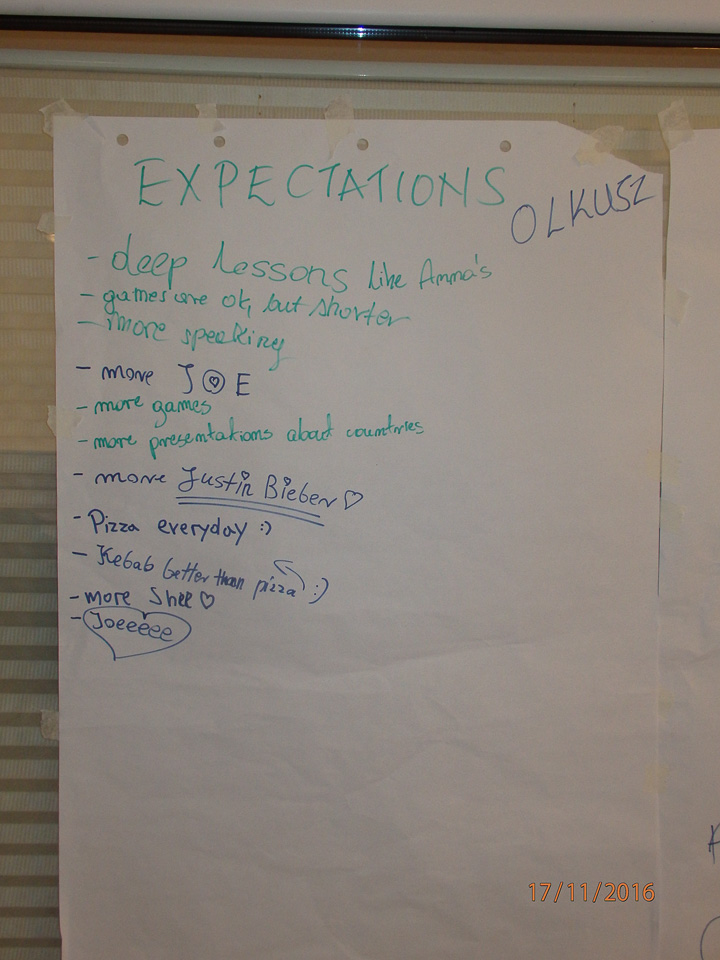 EXPECTATIONS
OLKUSZ
- deep lessons like Amma's
- games are ok, but shorter
- more speaking
- more JOE
- more games
- more presentations about countries
- more Justin Bieber ♡
- Pizza everyday :)
- Kebab better than pizza :)
- more Shee ♡
- Joeeeee
17/11/2016